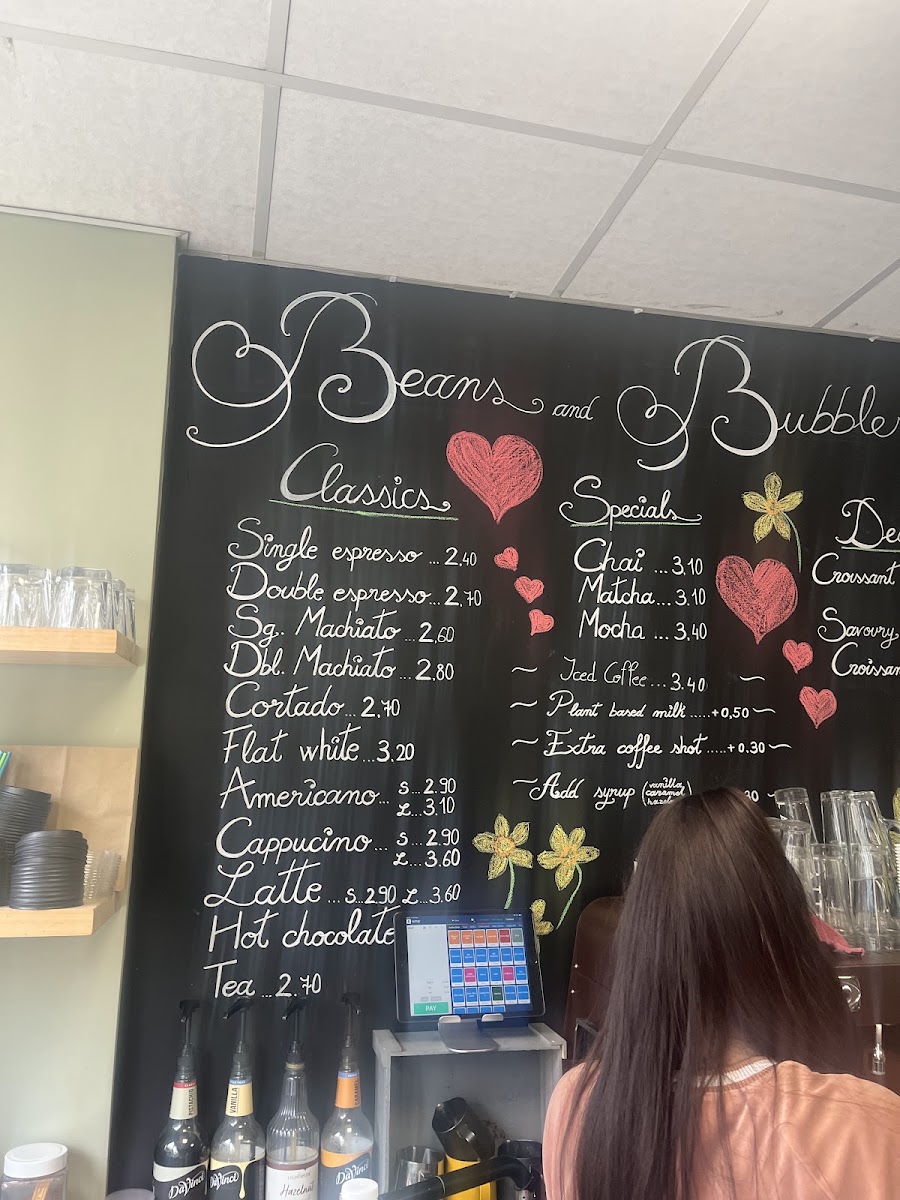 Beans and Bubble
Classics
Single espresso ... 2.40
Double espresso... 2.70
Sg. Machiato ... 2.60
Dbl. Machiato ... 2.80
Cortado... 2.70
Flat white... 3.20
Americano... S... 2.90
L... 3.10
Cappucino... S... 2.90
L... 3.60
Latte ... S... 2.90 L... 3.60
Hot chocolate
Tea ... 2.70
Specials
Chai ... 3.10
Matcha... 3.10
Mocha ... 3.40
~ Iced Coffee... 3.40 ~
~ Plant based milk.....+0.50 ~
~ Extra coffee shot.....+0.30 ~
~ Add syrup (vanilla
caramel
Croissant
Savoury
PAY
PISTACHIO
VANILLA
CARAMEL
DaVinci
DaVinci
Hazelnut
DaVinci